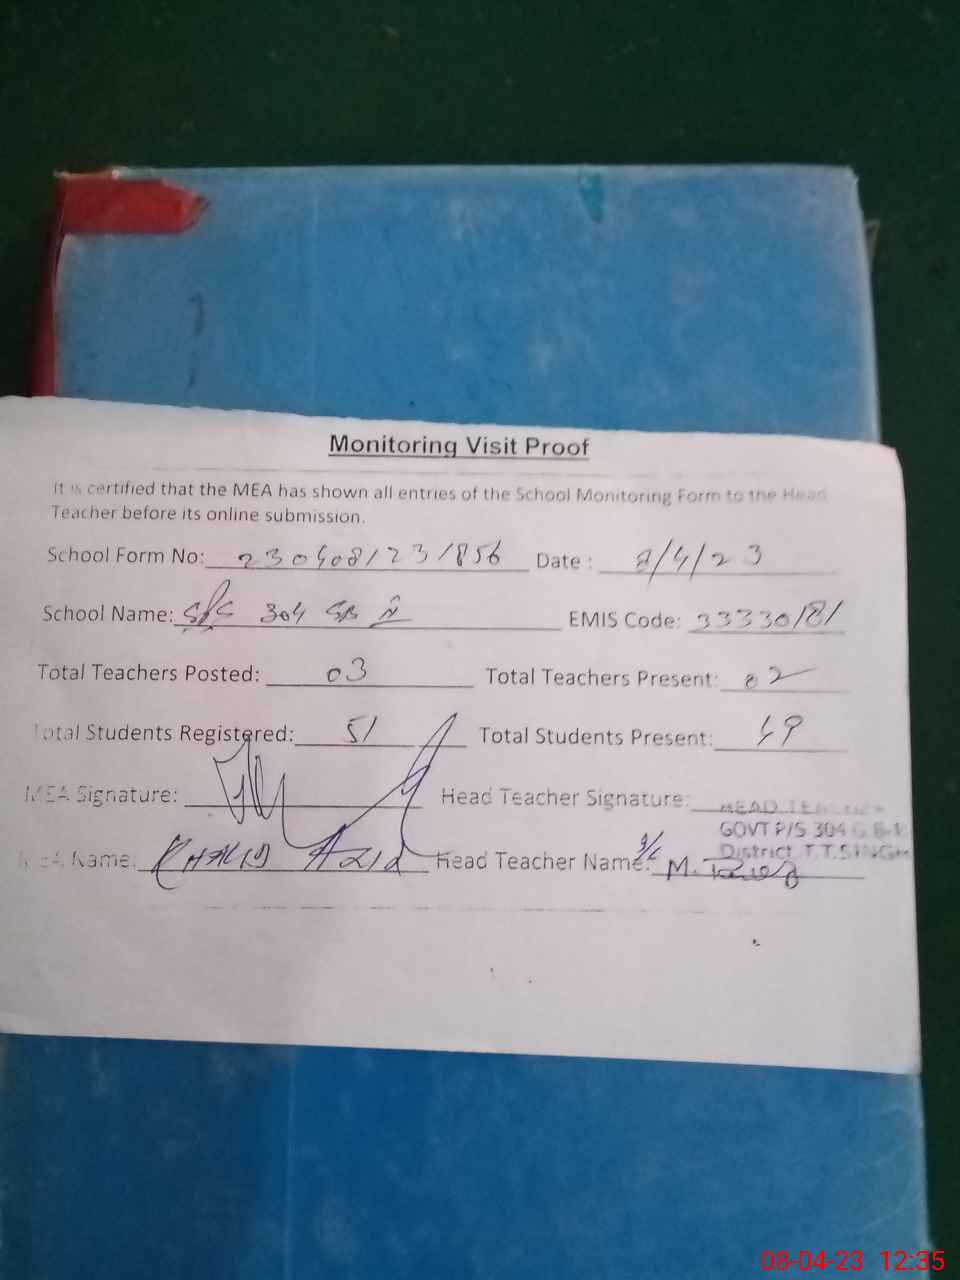 Monitoring Visit Proof
It is certified that the MEA has shown all entries of the School Monitoring Form to the Head
Teacher before its online submission.
School Form No: 230408/23/856 Date : 8/4/23
School Name: GPS 304 GB EMIS Code: 33330181
Total Teachers Posted: 03 Total Teachers Present: 02
Total Students Registered: 51 Total Students Present: 49
MEA Signature: Head Teacher Signature:
HEAD TEACHER
GOVT P/S 304 G.B-
District T.T.SINGH
MEA Name: KHALID AZIZ Head Teacher Name: M.
08-04-23 12:35